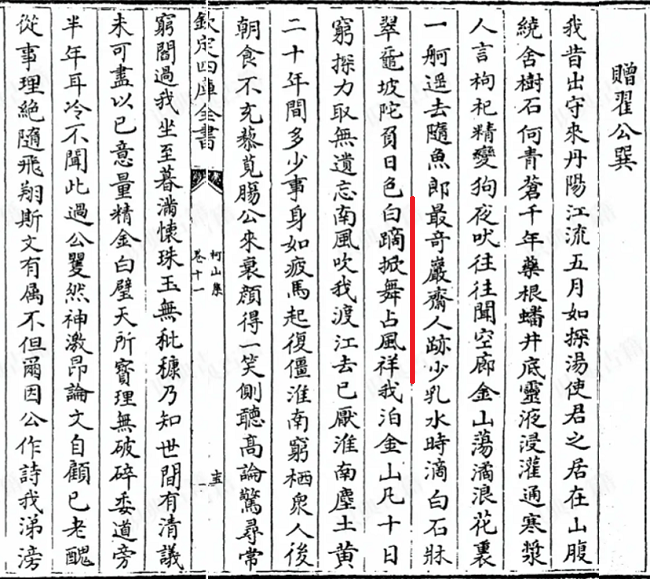 贈翟公巽
我昔出守來丹陽江流五月如探湯使君之居在山腹
繞舍樹石何青蒼千年藥根蟠井底靈液浸灌通寒漿
人言枸杞精變狗夜吠往往聞空廊金山蕩潏浪花裏
一舸遥去隨魚郎最奇巖齋人跡少乳水時滴白石牀
翠黿坡陀負日色白蹢掀舞占風祥我泊金山凡十日
窮探力取無遺忘南風吹我渡江去已厭淮南塵土黄
二十年間多少事身如疲馬起復僵淮南窮栖衆人後
朝食不充藜莧腸公來衰顔得一笑側聽高論驚尋常
欽定四庫全書
柯山集
卷十一
窮閻過我坐至暮滿懷珠玉無秕糠乃知世間有清議
未可盡以已意量精金白璧天所寳理無破碎委道旁
半年耳冷不聞此過公矍然神激昂論文自顧已老醜
從事理絶隨飛翔斯文有屬不但爾因公作詩我涕滂